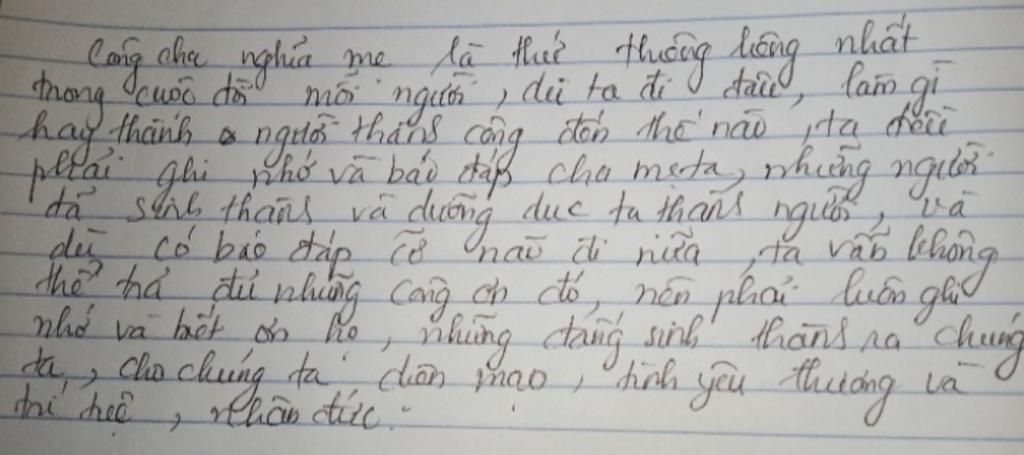 Công cha nghĩa mẹ là thứ thiêng liêng nhất
trong cuộc đời mỗi người, dù ta đi đâu, làm gì
hay thành người thành công đến thế nào, ta đều
phải ghi nhớ và báo đáp cha mẹ ta, những người
đã sinh thành và dưỡng dục ta thành người, và
dù có báo đáp cỡ nào đi nữa, ta vẫn không
thể trả đủ những công ơn đó, nên phải luôn ghi
nhớ và biết ơn họ, những đấng sinh thành ra chúng
ta, cho chúng ta diện mạo, tình yêu thương và
trí tuệ, nhân đức.